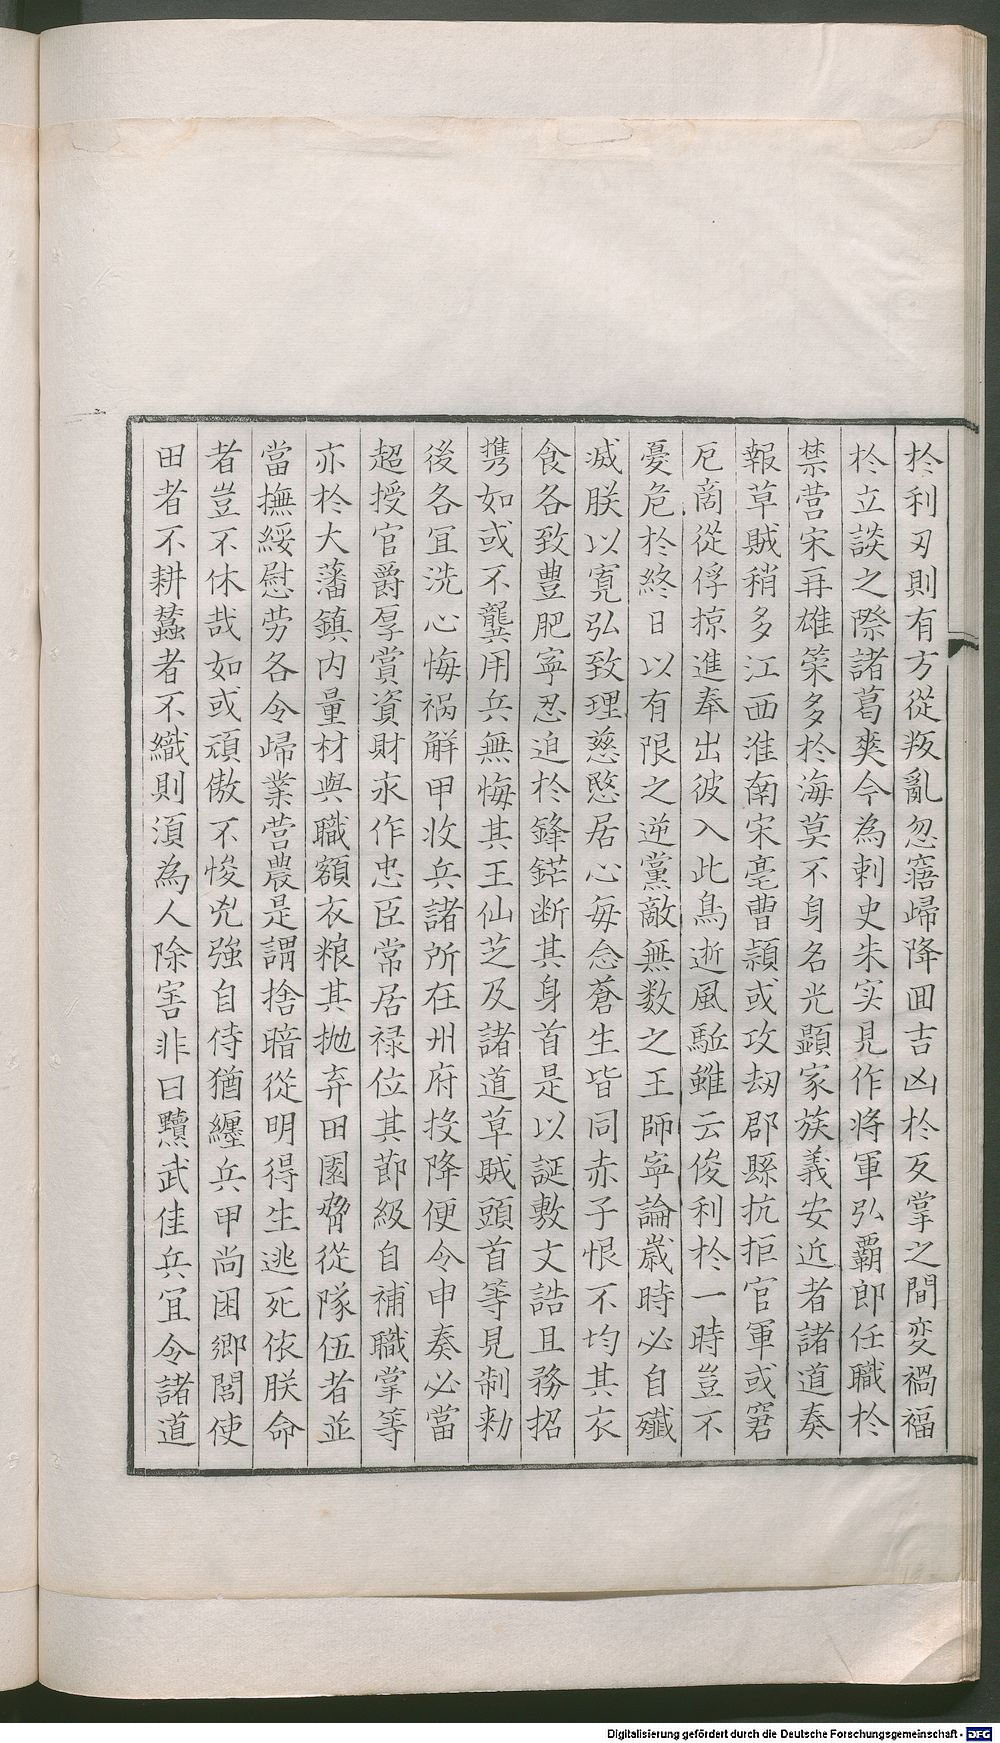 於利刃則有方從叛亂忽寤歸降囬吉凶於反掌之間変禍福
於立談之際諸葛爽今為刺史朱实見作将軍弘霸郎任職於
禁营宋再雄策多於海莫不身名光顯家族義安近者諸道奏
報草賊稍多江西淮南宋亳曹潁或攻刼郡縣抗拒官軍或窘
厄商從俘掠進奉出彼入此鳥逝風駈雖云俊利於一時豈不
憂危於終日以有限之逆黨敵無数之王師寧論歲時必自殲
滅朕以寛弘致理慈愍居心每念蒼生皆同赤子恨不均其衣
食各致豊肥寧忍迫於鋒鋩断其身首是以誕敷文誥且務招
携如或不龔用兵無悔其王仙芝及諸道草賊頭首等見制勑
後各冝洗心悔禍解甲收兵諸所在州府投降便令申奏必當
超授官爵厚賞資財永作忠臣常居禄位其節級自補職掌等
亦於大藩鎮内量材與職額衣粮其抛弃田園脅從隊伍者並
當撫綏慰劳各令歸業营農是謂捨暗從明得生逃死依朕命
者豈不休哉如或頑傲不悛兇強自侍猶纏兵甲尚困鄉閭使
田者不耕蠶者不織則湏為人除害非曰黷武佳兵冝令諸道
Digitalisierung gefördert durch die Deutsche Forschungsgemeinschaft - DFG